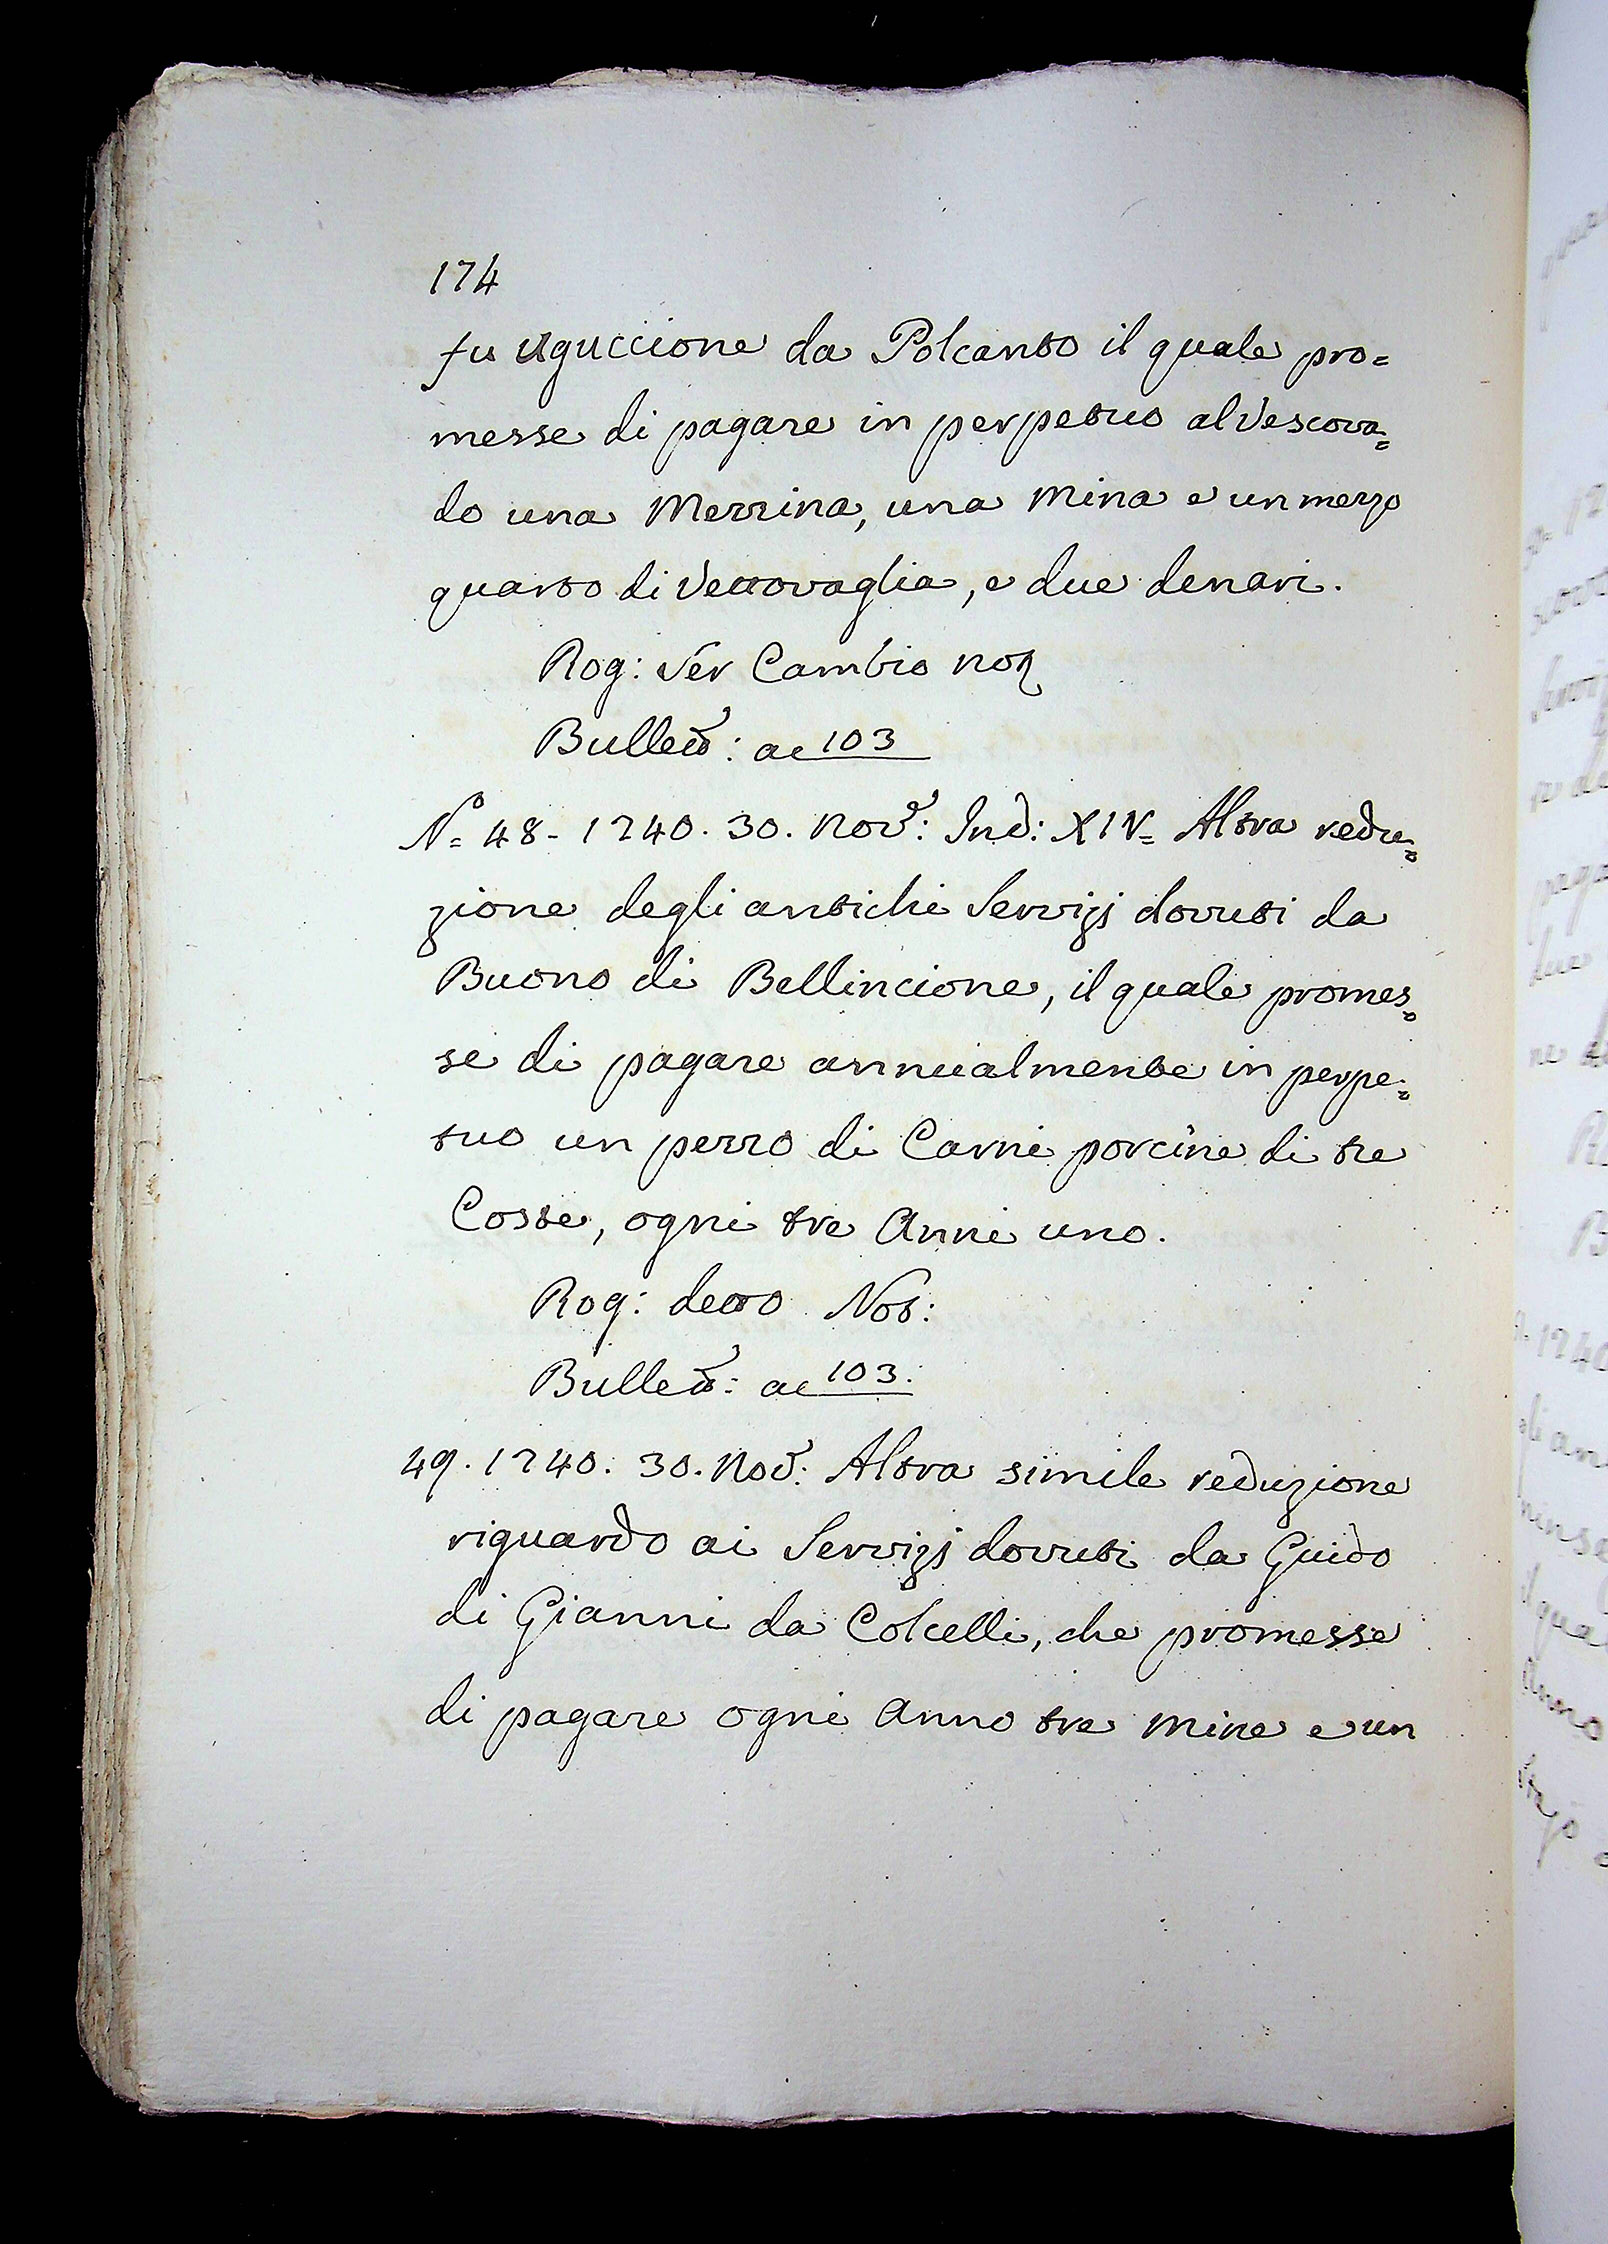 174
fu Uguccione da Polcanto il quale pro=
messe di pagare in perpetuo al Vescova=
do una Mezzina, una Mina e un mezzo
quarto di Vettovaglia, e due denari.
Rog: Ser Cambio not
Bullett: ac 103
N.º 48 - 1240. 30. Nov.e: Ind: XIV= Altra redu=
zione degli antichi Servizj dovuti da
Buono di Bellincione, il quale promes=
se di pagare annualmente in perpe=
tuo un pezzo di Carne porcine di tre
Coste, ogni tre Anni uno.
Rog: detto Not:
Bullett: ac 103.
49. 1240. 30. Nov: Altra simile reduzione
riguardo ai Servizj dovuti da Guido
di Gianni da Colcelli, che promesse
di pagare ogni Anno tre Mine e un